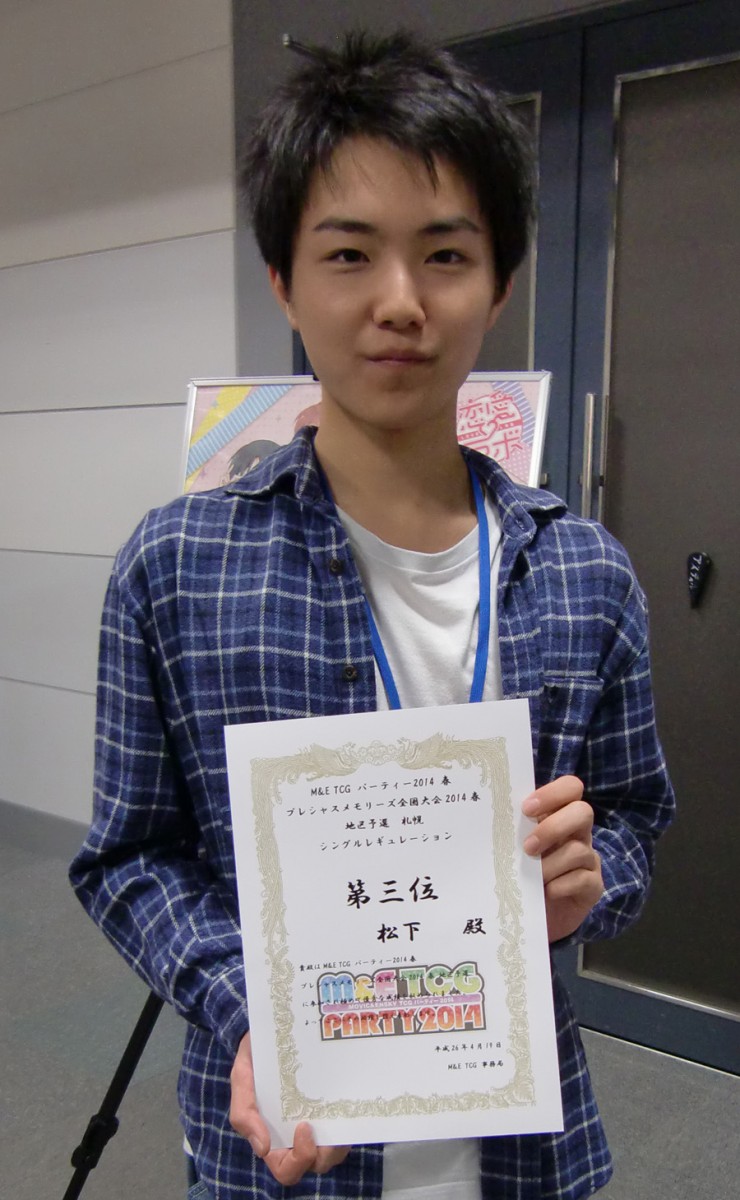 恋愛
ラボ
M&E TCG パーティー2014 春
プレシャスメモリーズ全国大会2014春
地区予選 札幌
シングルレギュレーション
第三位
松下 殿
貴殿は M&E TCG パーティー2014 春
M&E TCG
PARTY2014
平成26年4月19日
M&E TCG 事務局